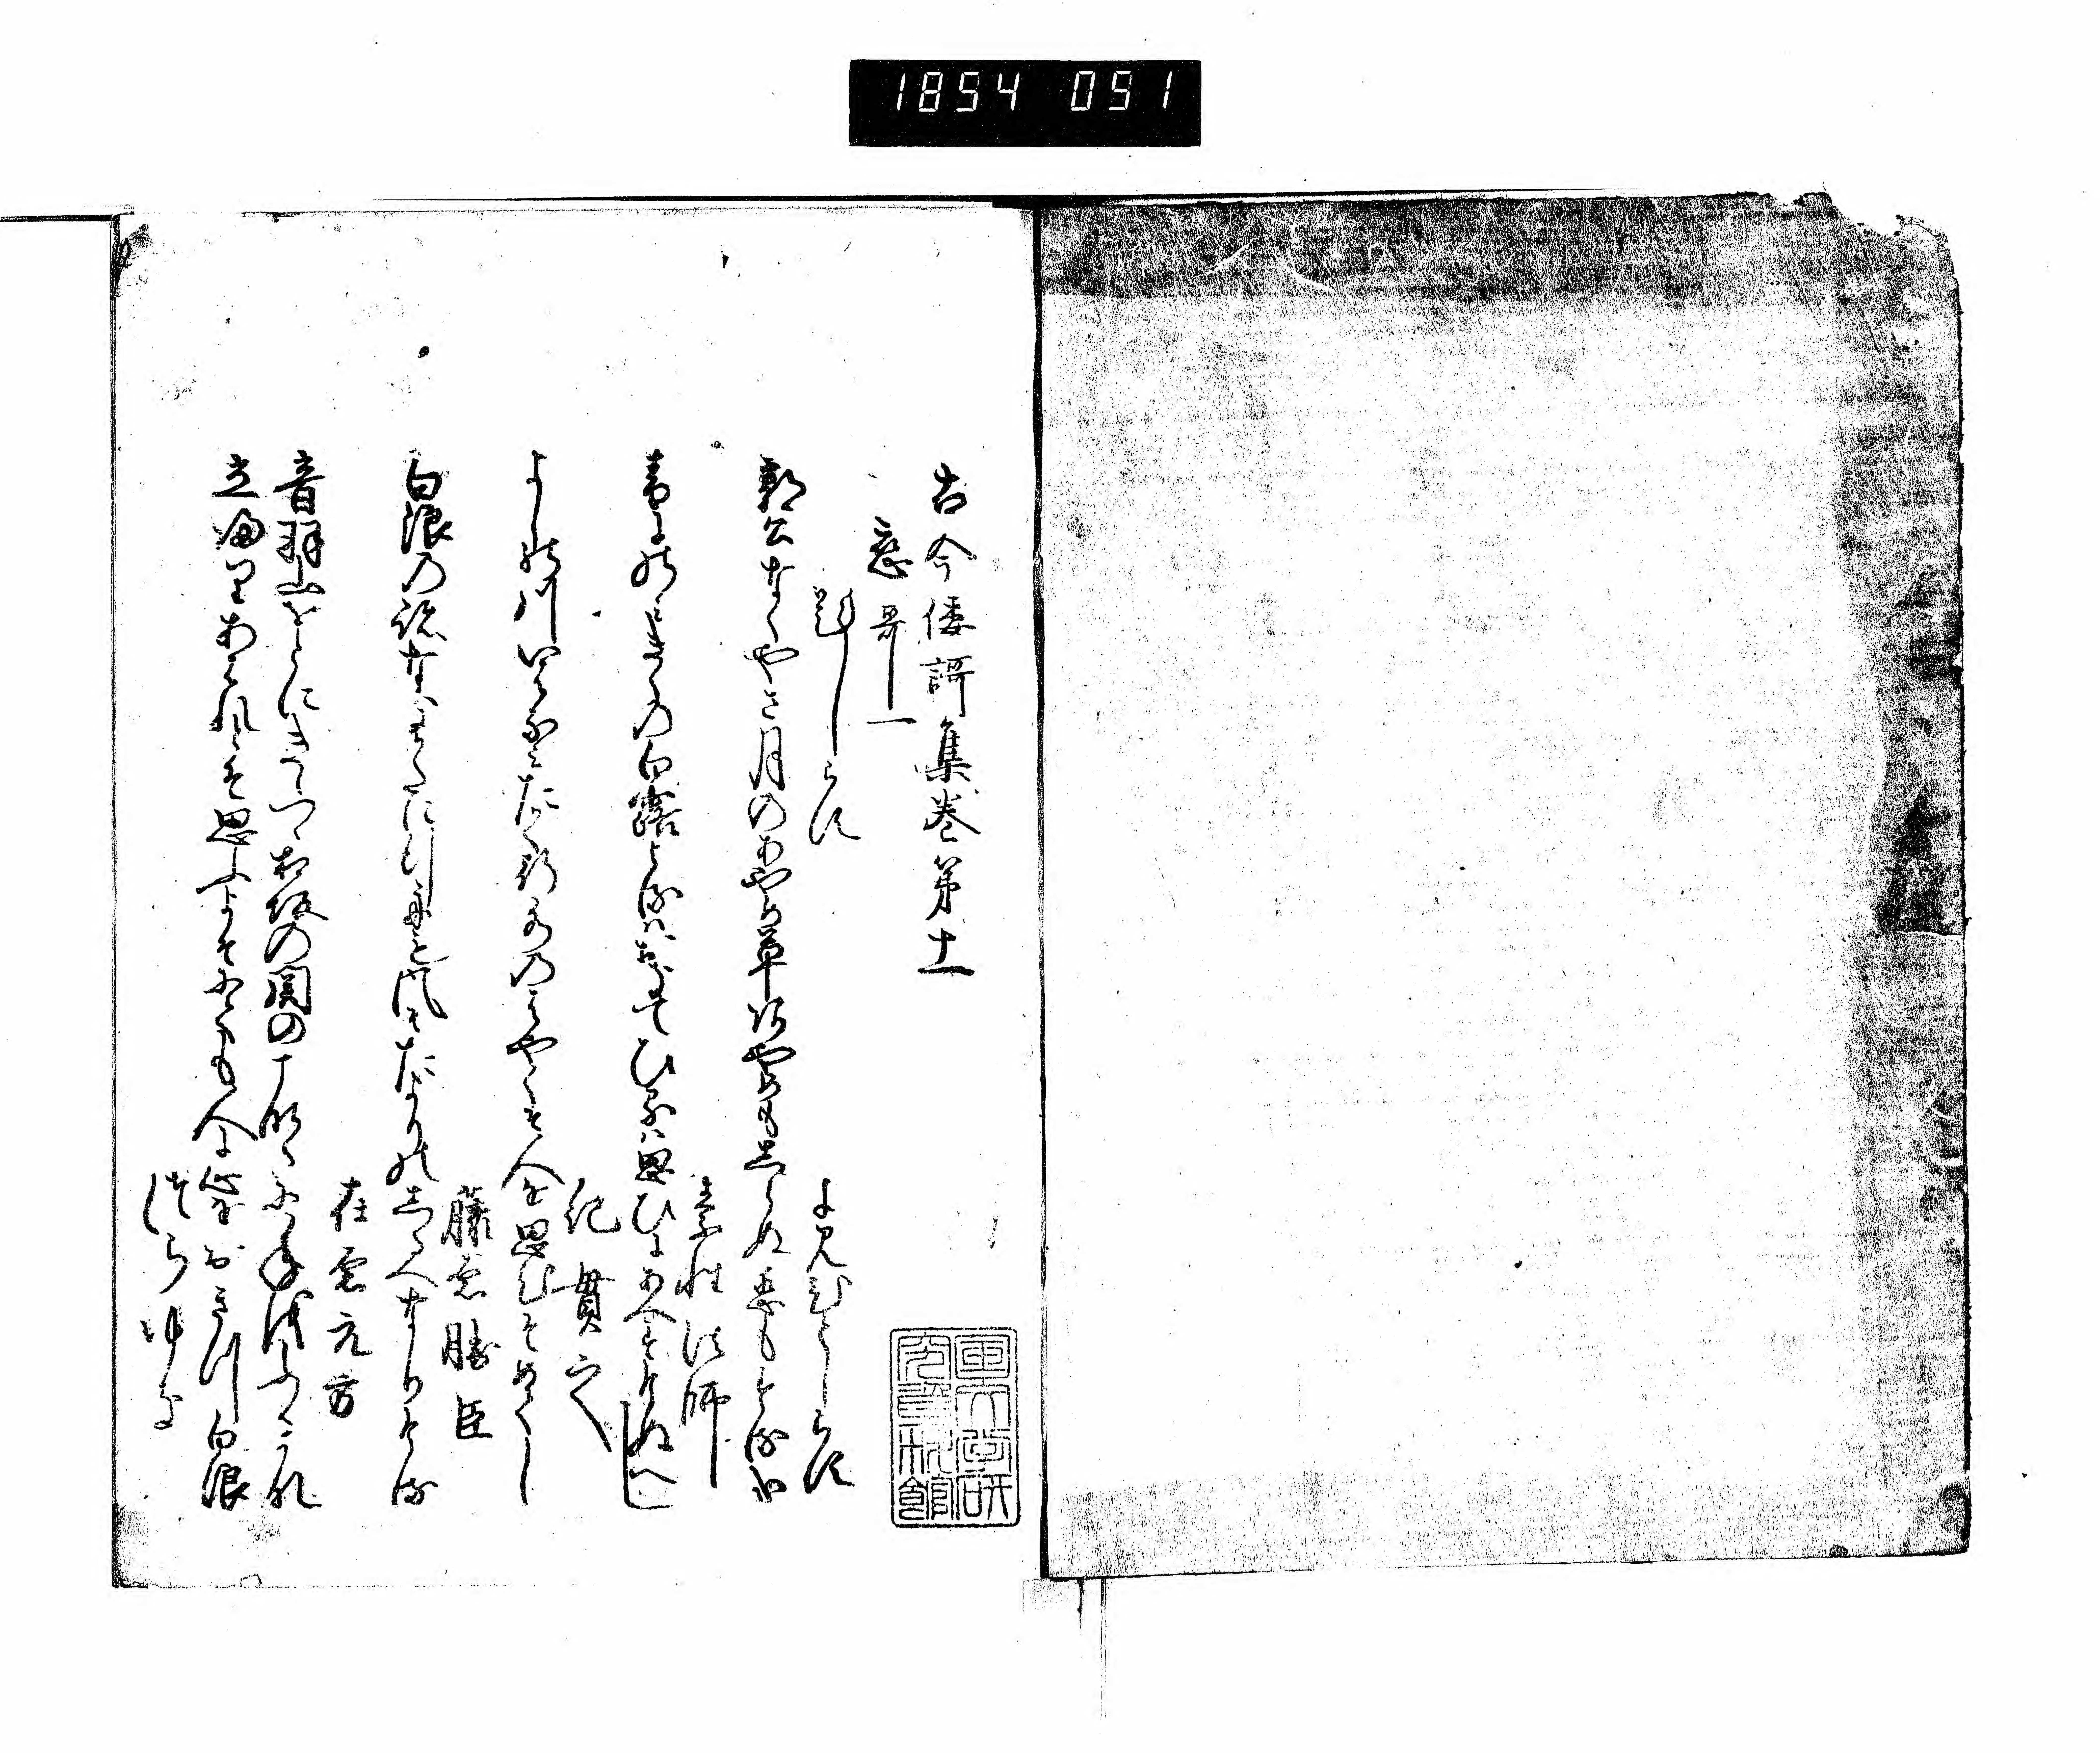 1854 051
古今倭謌集巻第十一
恋哥一
題しらす
よみ人しらす
郭公なくやさ月のあやめ草あやめもしらぬ恋もする哉
素性法師
音にのみきくの白露よるはおきてひるは思ひにあへすけぬへし
紀貫之
よしの川いはなみたかく行水のはやくそ人を思ひそめてし
藤原勝臣
白浪の跡なきかたに行舟も風そたよりのしるへなりける
在原元方
音羽山をとにきゝつゝ相坂の関のこなたに年をふるかな
立帰りあはれとそ思ふよそにても人に心をおきつ白浪
つらゆき
国文学研究資料館